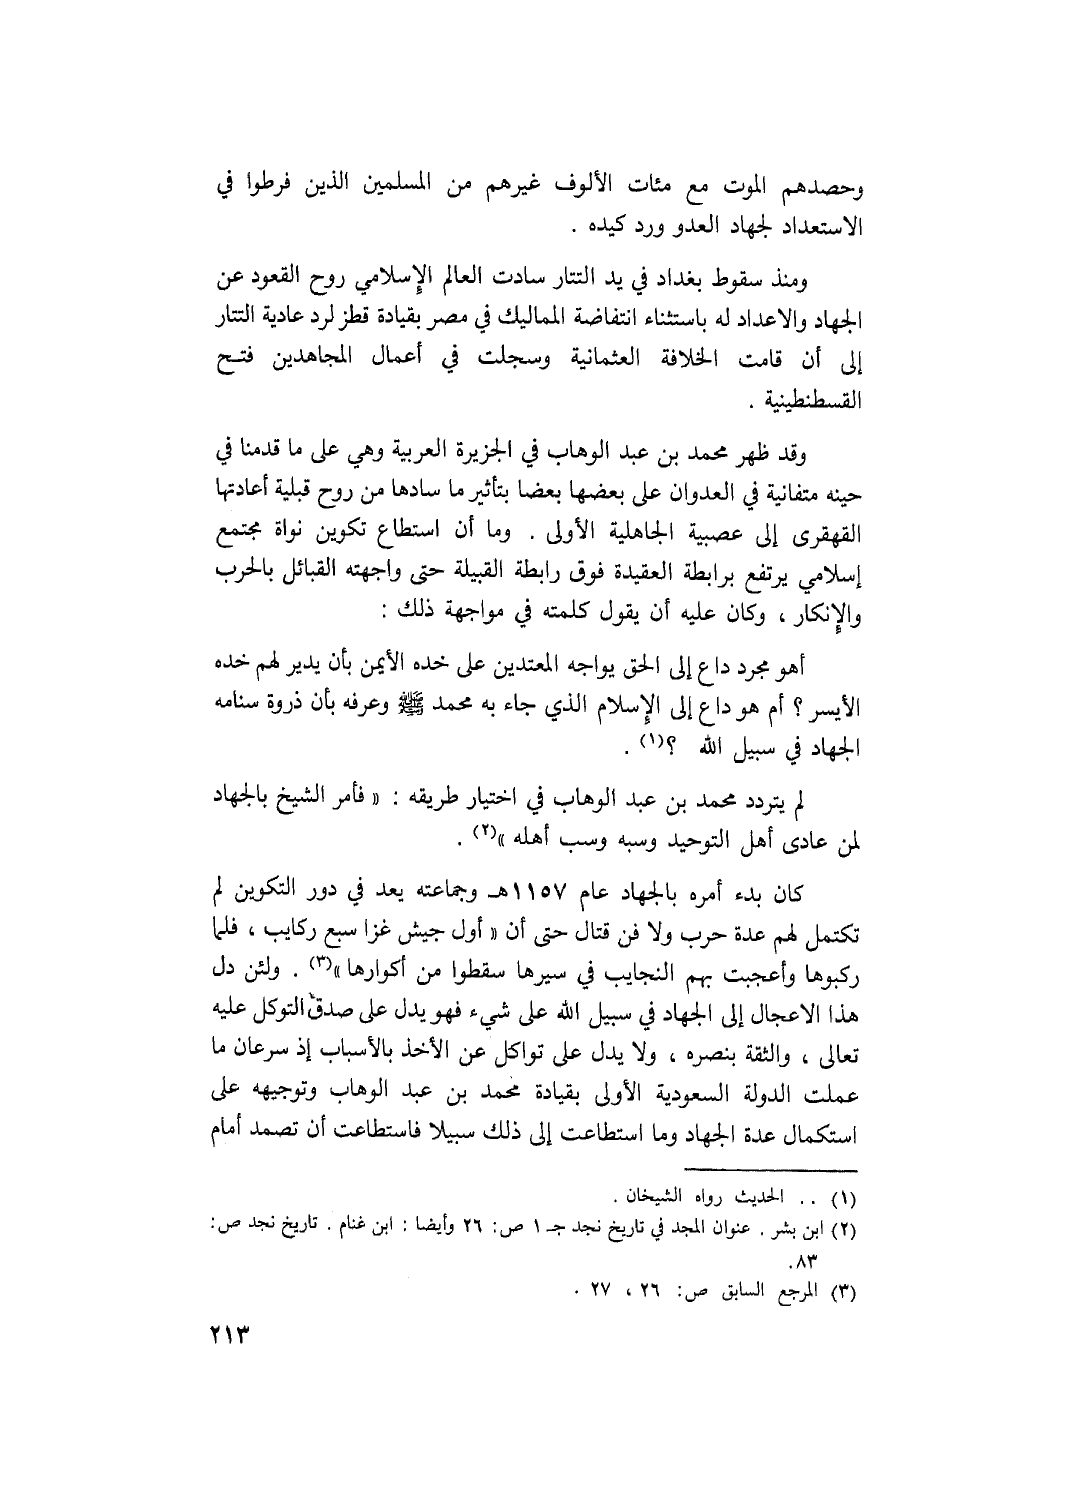 وحصدهم الموت مع مئات الألوف غيرهم من المسلمين الذين فرطوا في
الاستعداد لجهاد العدو ورد كيده .
ومنذ سقوط بغداد في يد التتار سادت العالم الإسلامي روح القعود عن
الجهاد والاعداد له باستثناء انتفاضة المماليك في مصر بقيادة قطز لرد عادية التتار
إلى أن قامت الخلافة العثمانية وسجلت في أعمال المجاهدين فتح
القسطنطينية .
وقد ظهر محمد بن عبد الوهاب في الجزيرة العربية وهي على ما قدمنا في
حينه متفانية في العدوان على بعضها بعضا بتأثير ما سادها من روح قبلية أعادتها
القهقرى إلى عصبية الجاهلية الأولى . وما أن استطاع تكوين نواة مجتمع
إسلامي يرتفع برابطة العقيدة فوق رابطة القبيلة حتى واجهته القبائل بالحرب
والإنكار ، وكان عليه أن يقول كلمته في مواجهة ذلك :
أهو مجرد داع إلى الحق يواجه المعتدين على خده الأيمن بأن يدير لهم خده
الأيسر ؟ أم هو داع إلى الإسلام الذي جاء به محمد ﷺ وعرفه بأن ذروة سنامه
الجهاد في سبيل الله ؟(١) .
لم يتردد محمد بن عبد الوهاب في اختيار طريقه : « فأمر الشيخ بالجهاد
لمن عادى أهل التوحيد وسبه وسب أهله »(٢) .
كان بدء أمره بالجهاد عام ١١٥٧هـ وجماعته يعد في دور التكوين لم
تكتمل لهم عدة حرب ولا فن قتال حتى أن « أول جيش غزا سبع ركايب ، فلما
ركبوها وأعجبت بهم النجايب في سيرها سقطوا من أكوارها »(٣) . ولئن دل
هذا الاعجال إلى الجهاد في سبيل الله على شيء فهو يدل على صدق التوكل عليه
تعالى ، والثقة بنصره ، ولا يدل على تواكل عن الأخذ بالأسباب إذ سرعان ما
عملت الدولة السعودية الأولى بقيادة محمد بن عبد الوهاب وتوجيهه على
استكمال عدة الجهاد وما استطاعت إلى ذلك سبيلا فاستطاعت أن تصمد أمام
(١) . . الحديث رواه الشيخان .
(٢) ابن بشر . عنوان المجد في تاريخ نجد جـ ١ ص: ٢٦ وأيضا : ابن غنام . تاريخ نجد ص:
٨٣.
(٣) المرجع السابق ص: ٢٦ ، ٢٧ .
٢١٣